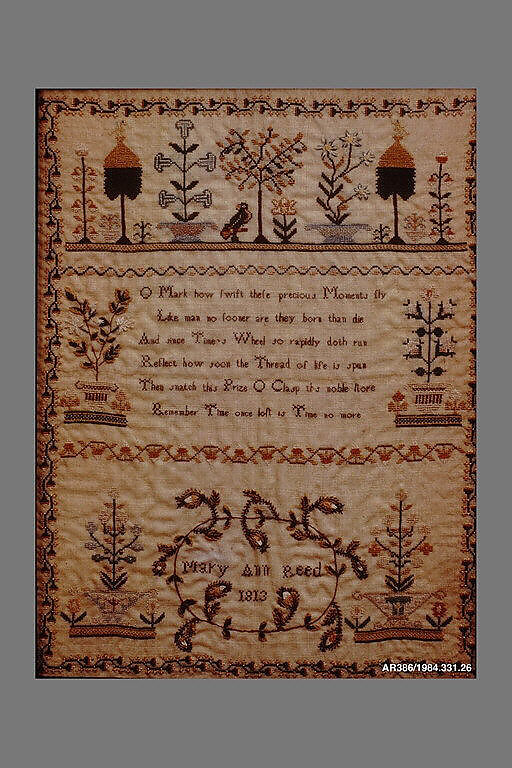 O Mark how ſwift theſe precious Moments fly
Like man no ſooner are they born than die
And since Time's Wheel so rapidly doth run
Reflect how soon the Thread of life is spun
Then snatch this Prize O Clasp it's noble ſtore
Remember Time once loſt is Time no more
Mary Ann Reed
1813
AR386/1984.331.26